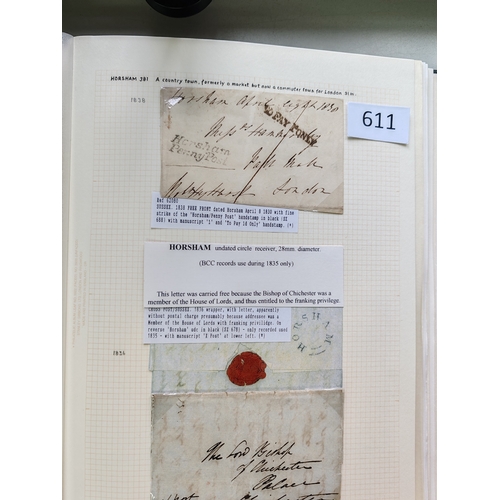 HORSHAM 381 A country town, formerly a market but now a commuter town for London 31m.
1830
611
Horsham April eight 1830
TO PAY 1D ONLY
Horsham
Penny Post
Pall Mall
London
Ref 62802
SUSSEX. 1830 FREE FRONT dated Horsham April 8 1830 with fine
strike of the 'Horsham/Penny Post' handstamp in black (SX
688) with manuscript '1' and 'To Pay 1d Only' handstamp. (*)
HORSHAM undated circle receiver, 28mm. diameter.
(BCC records use during 1835 only)
This letter was carried free because the Bishop of Chichester was a
member of the House of Lords, and thus entitled to the franking privilege.
CROSS POST/SUSSEX. 1834 wrapper, with letter, apparently
without postal charge presumably because addressee was a
Member of the House of Lords with franking privilidge. On
reverse 'Horsham' udc in black (SX 678) - only recorded used
1835 - with manuscript 'X Post' of lower left. (*)
1834
The Lord Bishop
of Chichester
Palace
Chichester